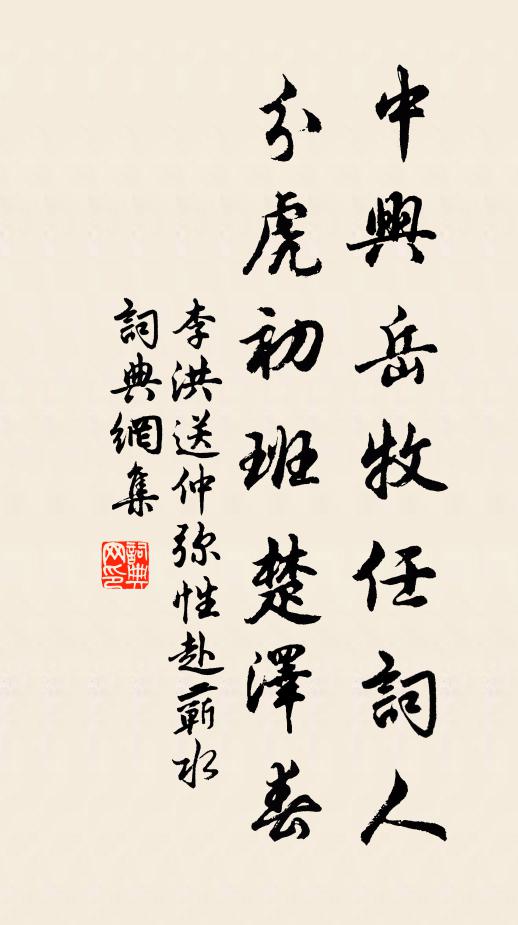 中興岳牧任詞人
分虎初班楚澤春
李洪送仲弥性赴蘄水
詞典網集
詞典网印